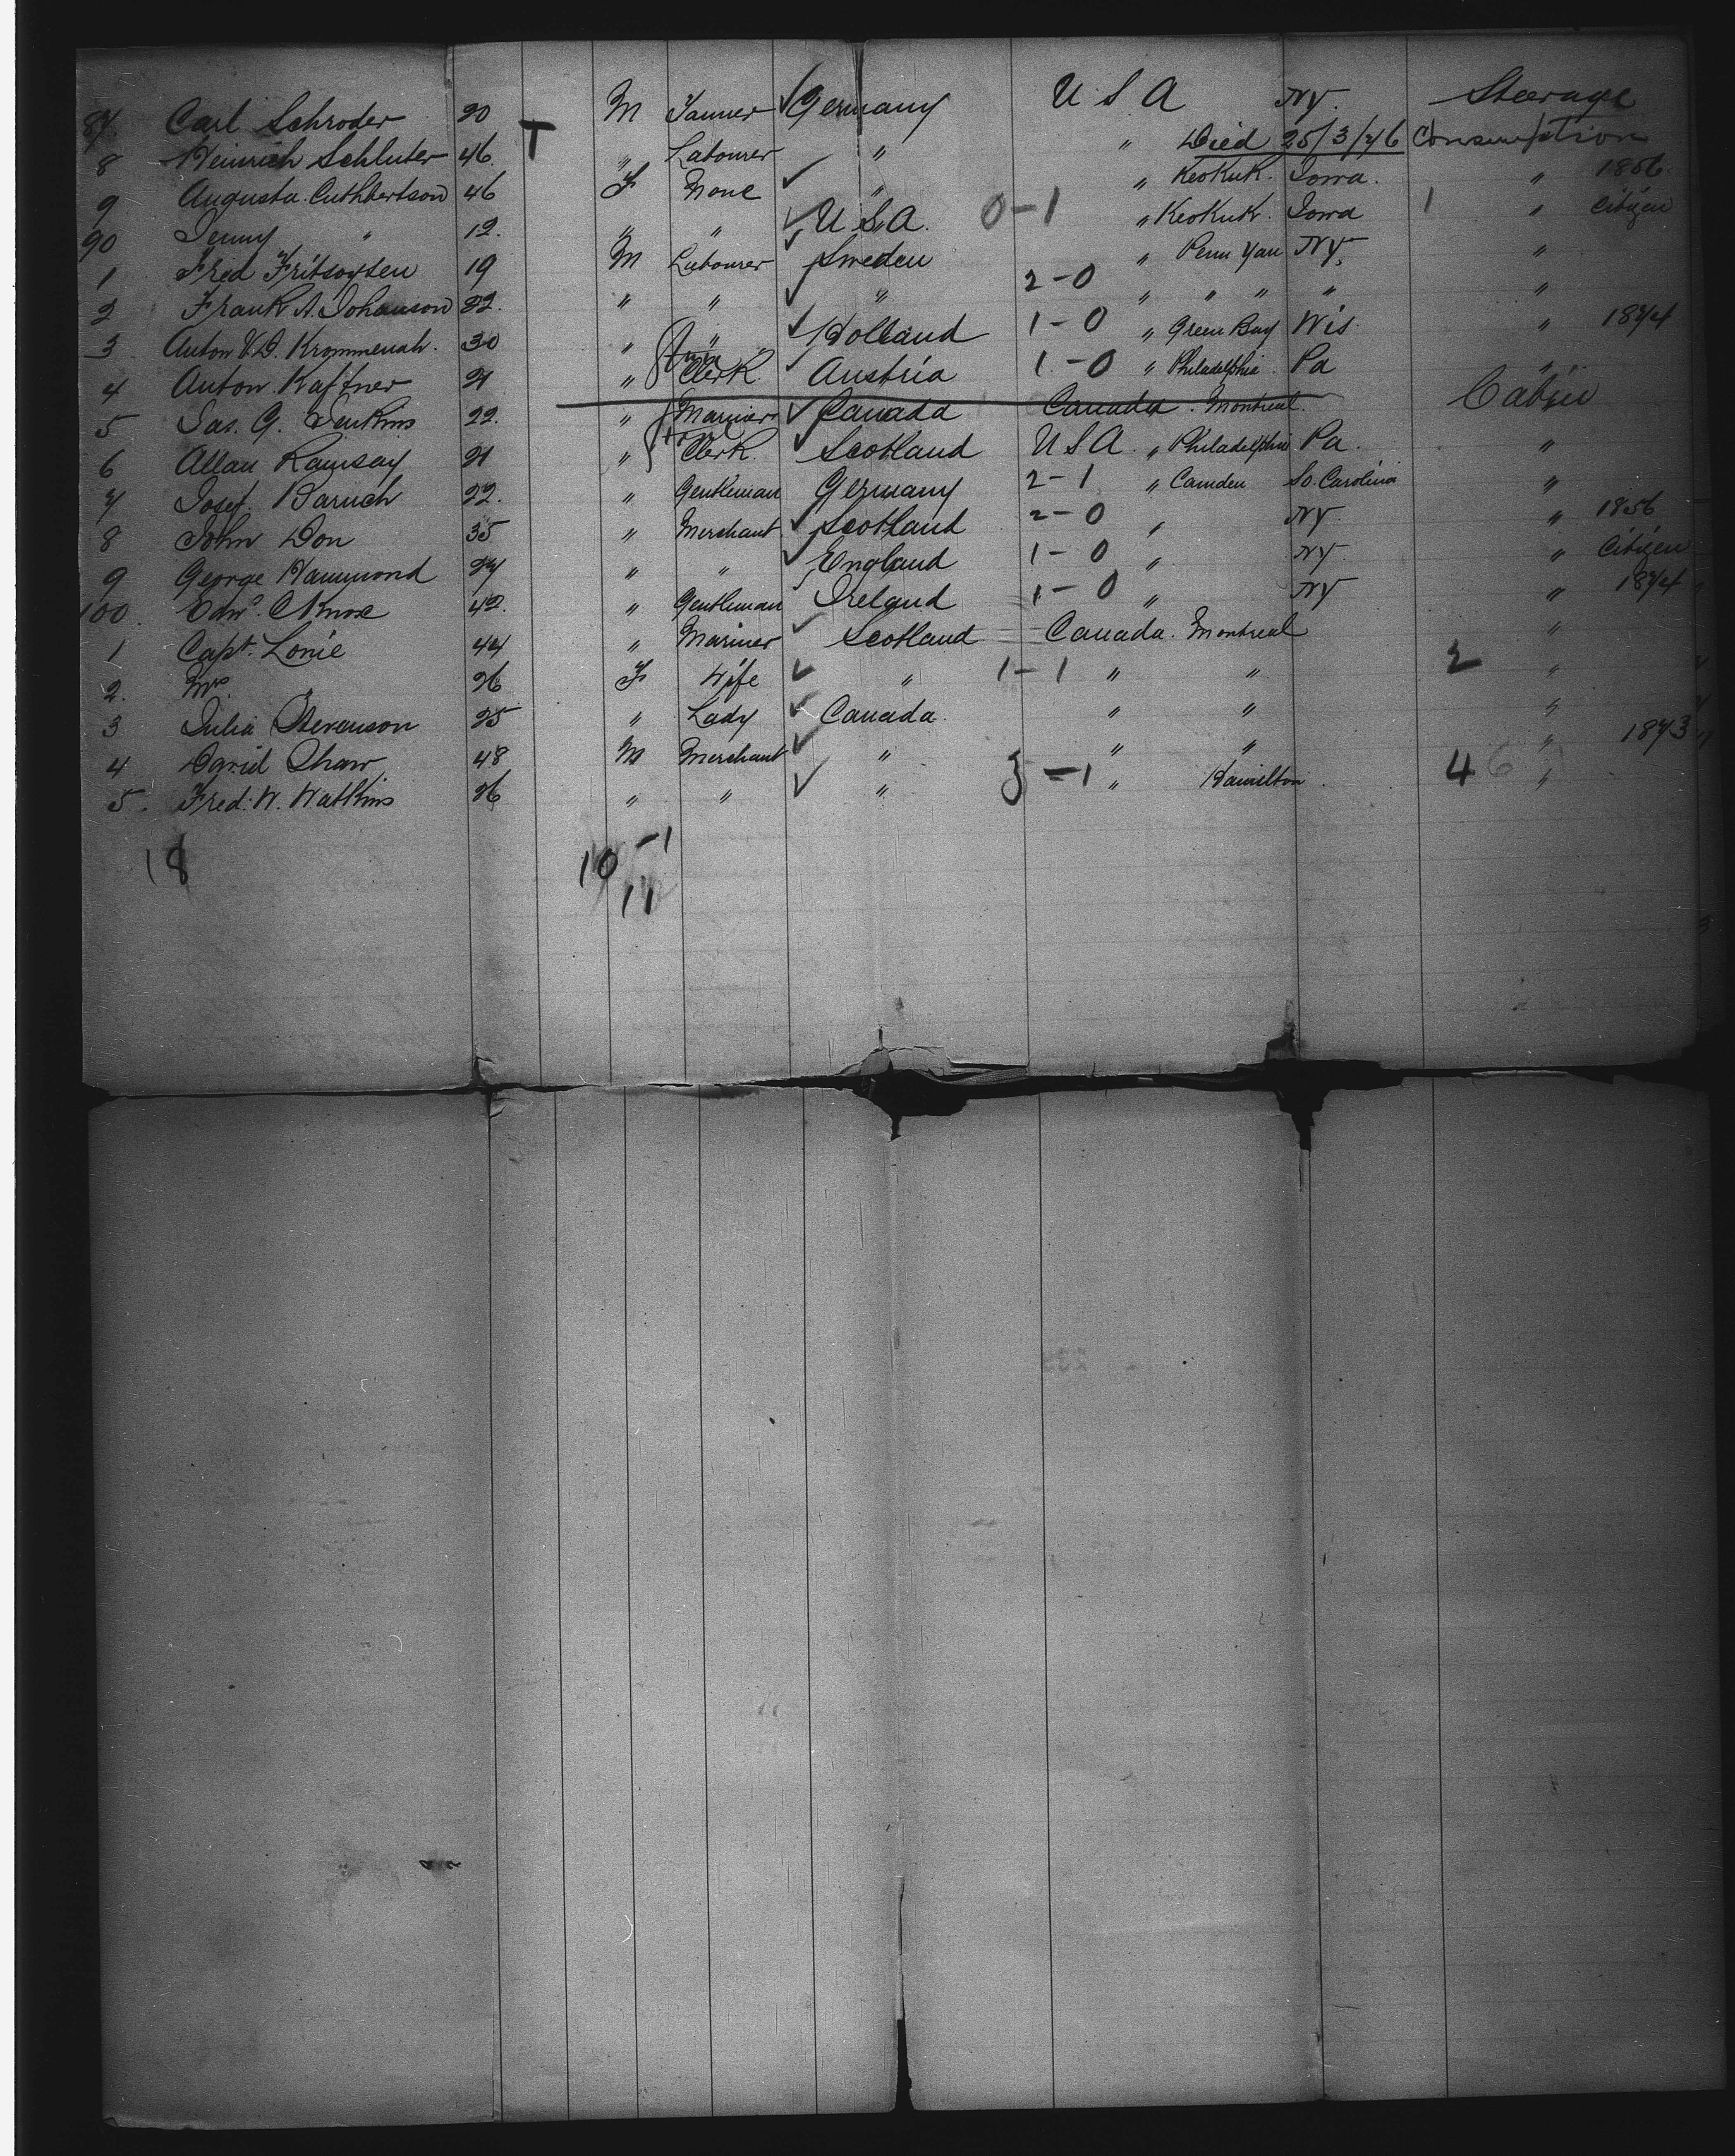 87. Carl Schroder 20 M Tanner Germany U S A NY. Steerage
8 Heinrich Schluter 46. T " Labourer " " Died 25/3/76 Consumption
9 Augusta Cuthbertson 46 F None " " Keokuk. Iowa. " 1856
90 Jenny " 12. " " U S A. 0-1 " Keokuk. Iowa 1 " Citizen
1 Fred 19 M Labourer Sweden " Penn Yan NY, "
2 Frank A. Johanson 22. " " " 2-0 " " " " "
3 Anton V.D. 30 " " Holland 1-0 " Green Bay Wis " 1874
4 Anton 21 " Clerk. Austria 1-0 " Philadelphia. Pa "
5 Jas. G. Jenkins 22. " Mariner Canada Canada. Montreal. Cabin
6 Allan Ramsay 21 " Clerk. Scotland U S A. " Philadelphia Pa. "
7 Josef. Baruch 22. " Gentleman Germany 2-1 " Camden So. Carolina "
8 John Don 35 " Merchant Scotland 2-0 " NY. " 1856
9 George Hammond 27 " " England 1-0 " NY. " Citizen
100. Edwd. Knox 42. " Gentleman Ireland 1-0 " NY " 1874
1 Capt. Lonie 44 " Mariner Scotland Canada. Montreal "
2. Mrs. " 26 F Wife " 1-1 " " 2 "
3 Julia Stevenson 25 " Lady Canada. " " "
4 David Shaw 48 M Merchant " " " " 1873
5. Fred: W. Watkins 26 " " " 3-1 " Hamilton. 4 6 "
18 10-1
11